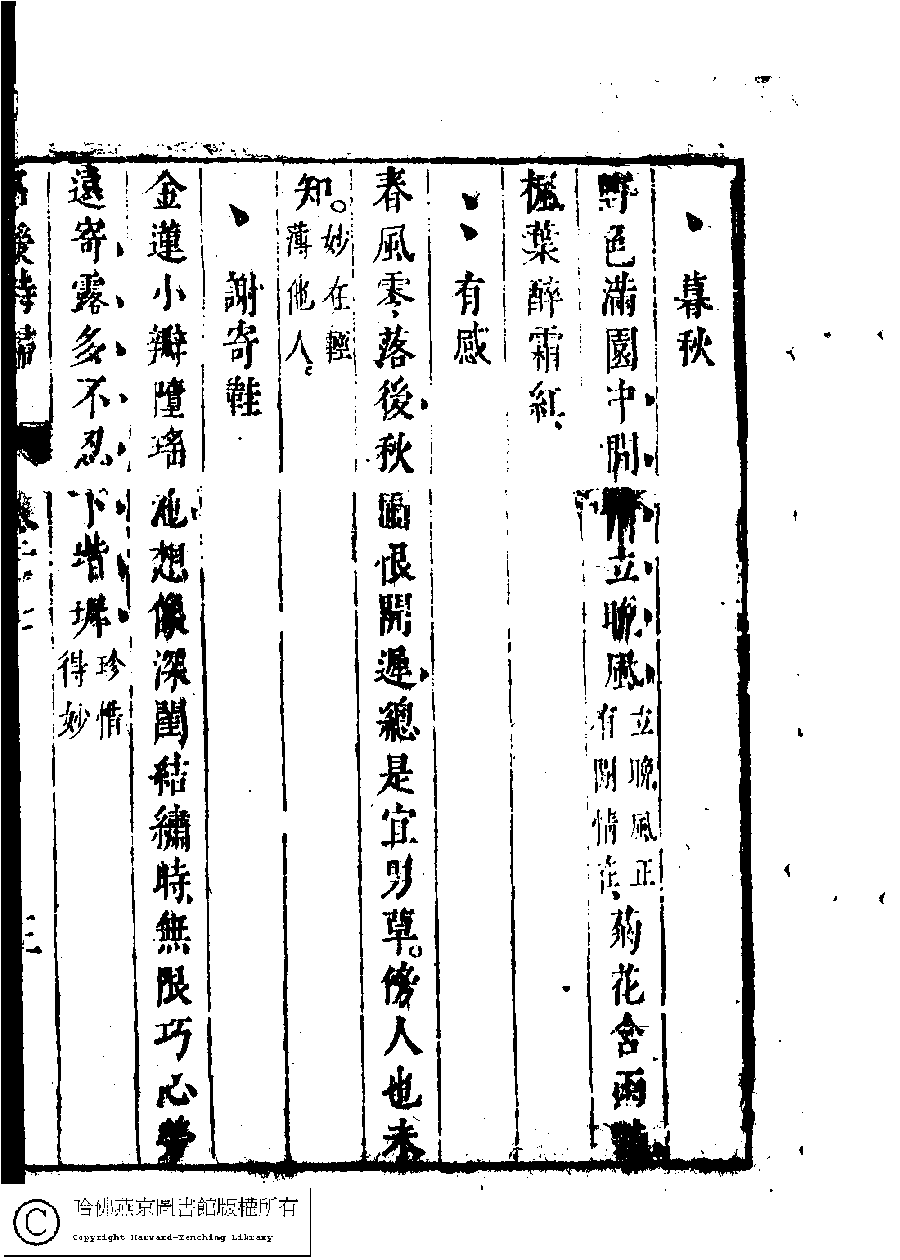 暮秋
野色滿園中閒 立晚風立晚風正有關情在菊花含雨
楓葉醉霜紅
有感
春風零落後秋 恨開遲總是宜男草傍人也未
知妙在輕薄他人
謝寄鞋
金蓮小瓣墮瑤池想像深閨結繡時無限巧心勞
遠寄露多不忍下堦墀珍惜得妙
名媛詩歸
三
哈佛燕京圖書館版權所有
Copyright Harvard-Yenching Library